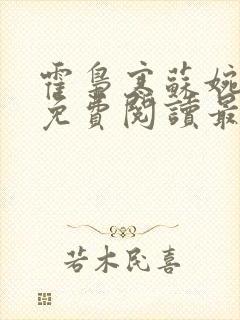 霍梟寒蘇婉
免費閱讀最
若木民喜